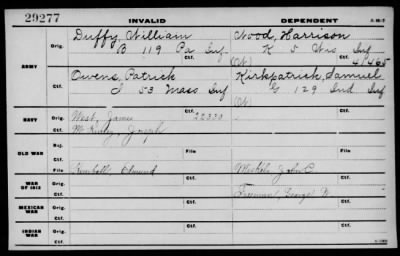 29277 INVALID DEPENDENT 3-1087
Orig. Duffy, William Wood, Harrison
B 119 Pa Inf K 5 Wis Inf
ARMY Ctf. Ctf. 41465
Orig. Owens, Patrick Kirkpatrick, Samuel
I 53 Mass Inf G 129 Ind Inf
Ctf.
NAVY Orig. West, James Ctf. 22330
McKinley, Joseph
OLD WAR File File
WAR OF 1812 File Kimball, Edmund Meskel, John C.
Ctf.
MEXICAN WAR Orig. Freeman, George W.
Ctf.
INDIAN WAR Orig.
Ctf.